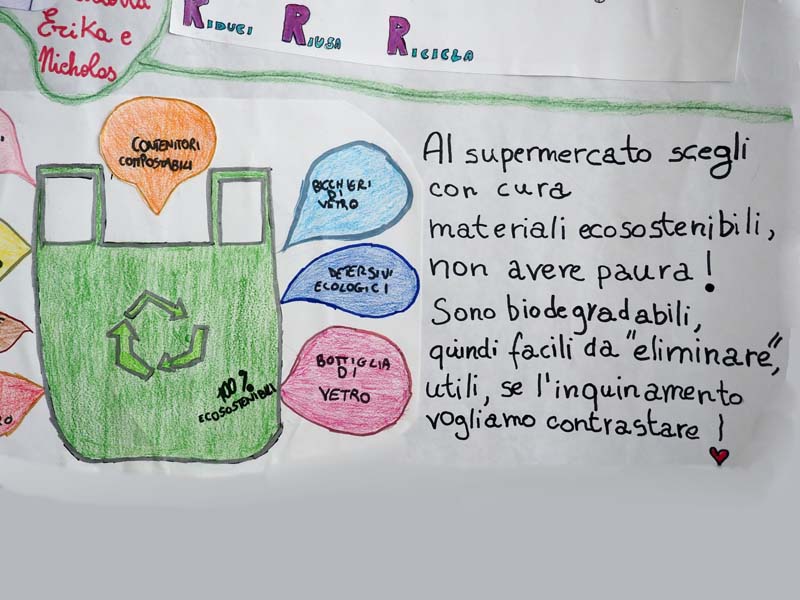 Erika e
Nicholas
Riduci Riusa Ricicla
CONTENITORI
COMPOSTABILI
BICCHIERI
DI
VETRO
DETERSIVI
ECOLOGICI
BOTTIGLIA
DI
VETRO
100%
ECOSOSTENIBILI
Al supermercato scegli
con cura
materiali ecosostenibili,
non avere paura!
Sono biodegradabili,
quindi facili da "eliminare",
utili, se l'inquinamento
vogliamo contrastare!